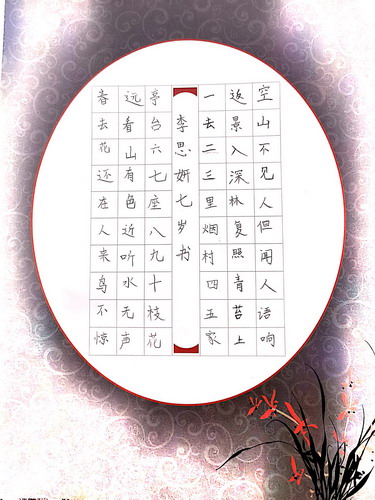 空山不见人但闻人语响
返景入深林复照青苔上
一去二三里烟村四五家
李思妍七岁书
亭台六七座八九十枝花
远看山有色近听水无声
春去花还在人来鸟不惊